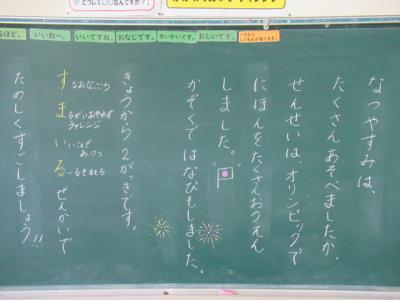 どうして○○なんですか?
なるほど。
いいね〜。
いいですね。
おなじです。
せいかいです。
おしいです。
なつやすみは、
たくさんあそべましたか。
せんせいは、オリンピックで
にほんをたくさんおうえん
しました。
かぞくではなびもしました。
きょうから2がっきです。
すなおなこころ
まるがいあきらめず チャレンジ
いいこえで あいさつ
るーるをまもる
ぜんかいで
たのしくすごしましょう!!